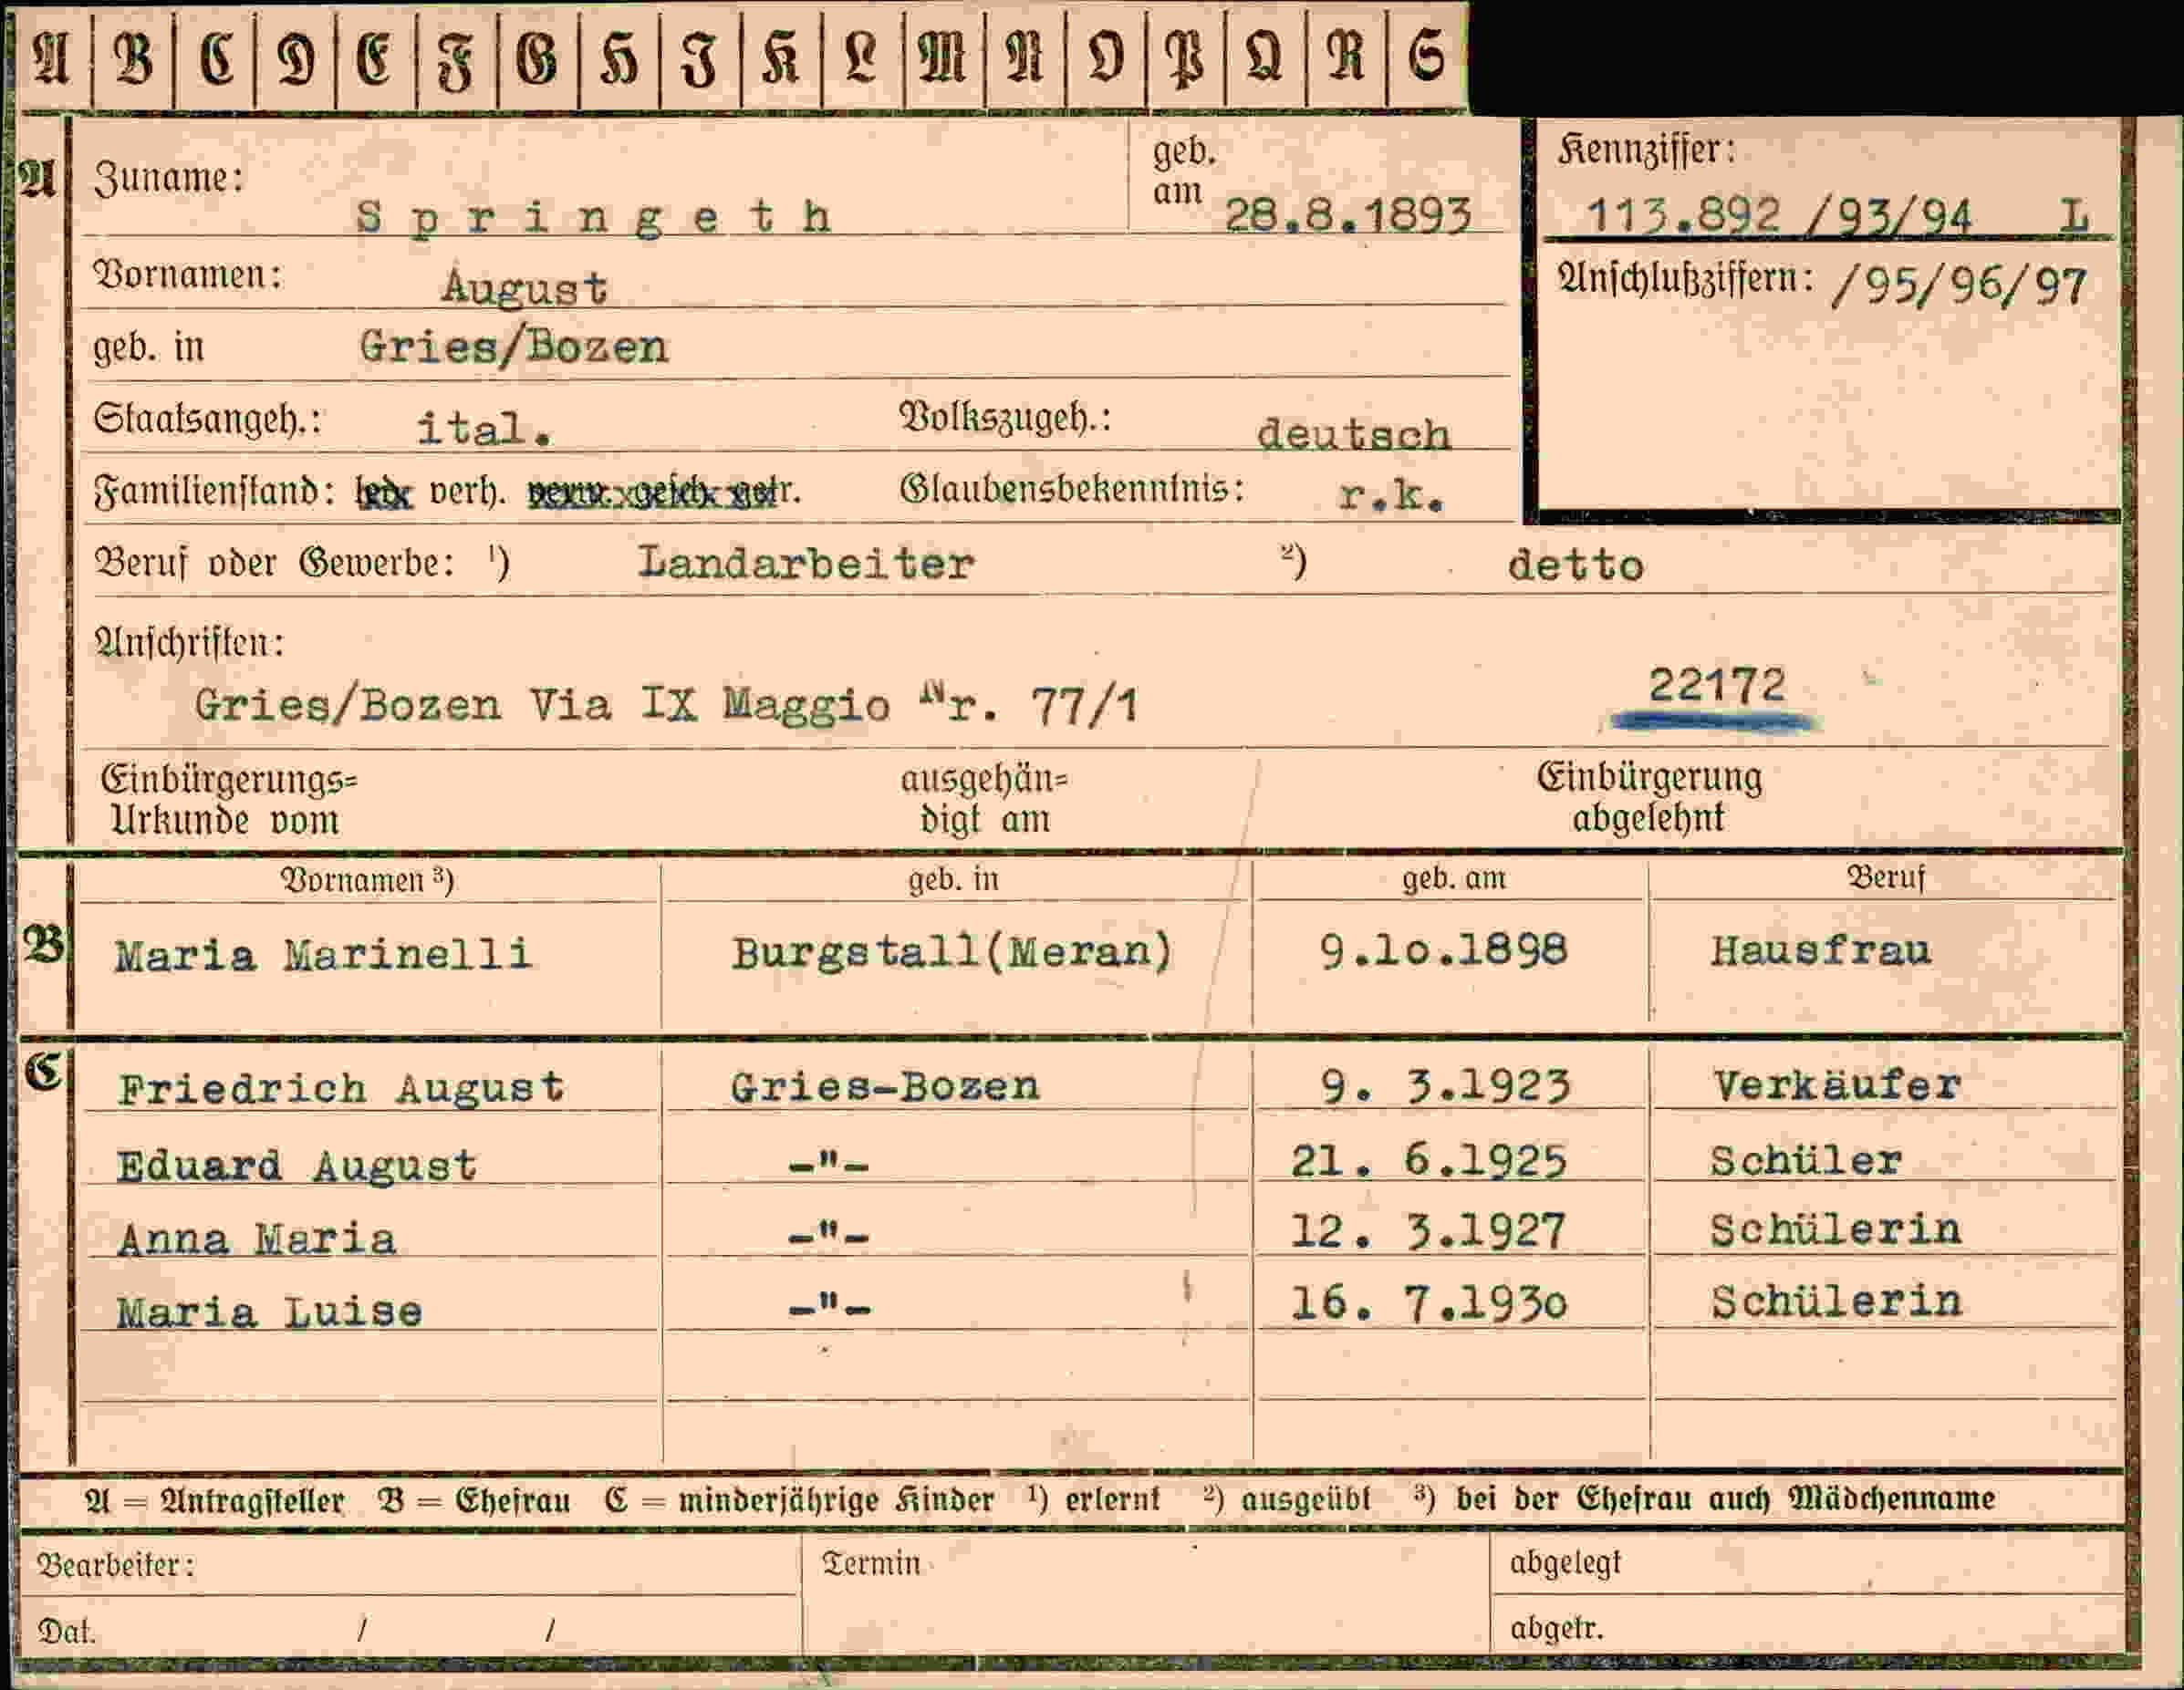 A B C D E F G H I K L M N O P Q R S
A Zuname: Springeth geb. am 28.8.1893
Kennziffer: 113.892 /93/94 L
Vornamen: August
Anschlußziffern: /95/96/97
geb. in Gries/Bozen
Staatsangeh.: ital. Volkszugeh.: deutsch
Familienstand: led. verh. verw. gesch. getr. Glaubensbekenntnis: r.k.
Beruf oder Gewerbe: 1) Landarbeiter 2) detto
Anschriften:
Gries/Bozen Via IX Maggio Nr. 77/1 22172
Einbürgerungs= ausgehän= Einbürgerung
Urkunde vom digt am abgelehnt
Vornamen 3) geb. in geb. am Beruf
B Maria Marinelli Burgstall(Meran) 9.10.1898 Hausfrau
C Friedrich August Gries-Bozen 9. 3.1923 Verkäufer
Eduard August -"- 21. 6.1925 Schüler
Anna Maria -"- 12. 3.1927 Schülerin
Maria Luise -"- 16. 7.1930 Schülerin
A = Antragsteller B = Ehefrau C = minderjährige Kinder 1) erlernt 2) ausgeübt 3) bei der Ehefrau auch Mädchenname
Bearbeiter: Termin abgelegt
Dat. / / abgetr.